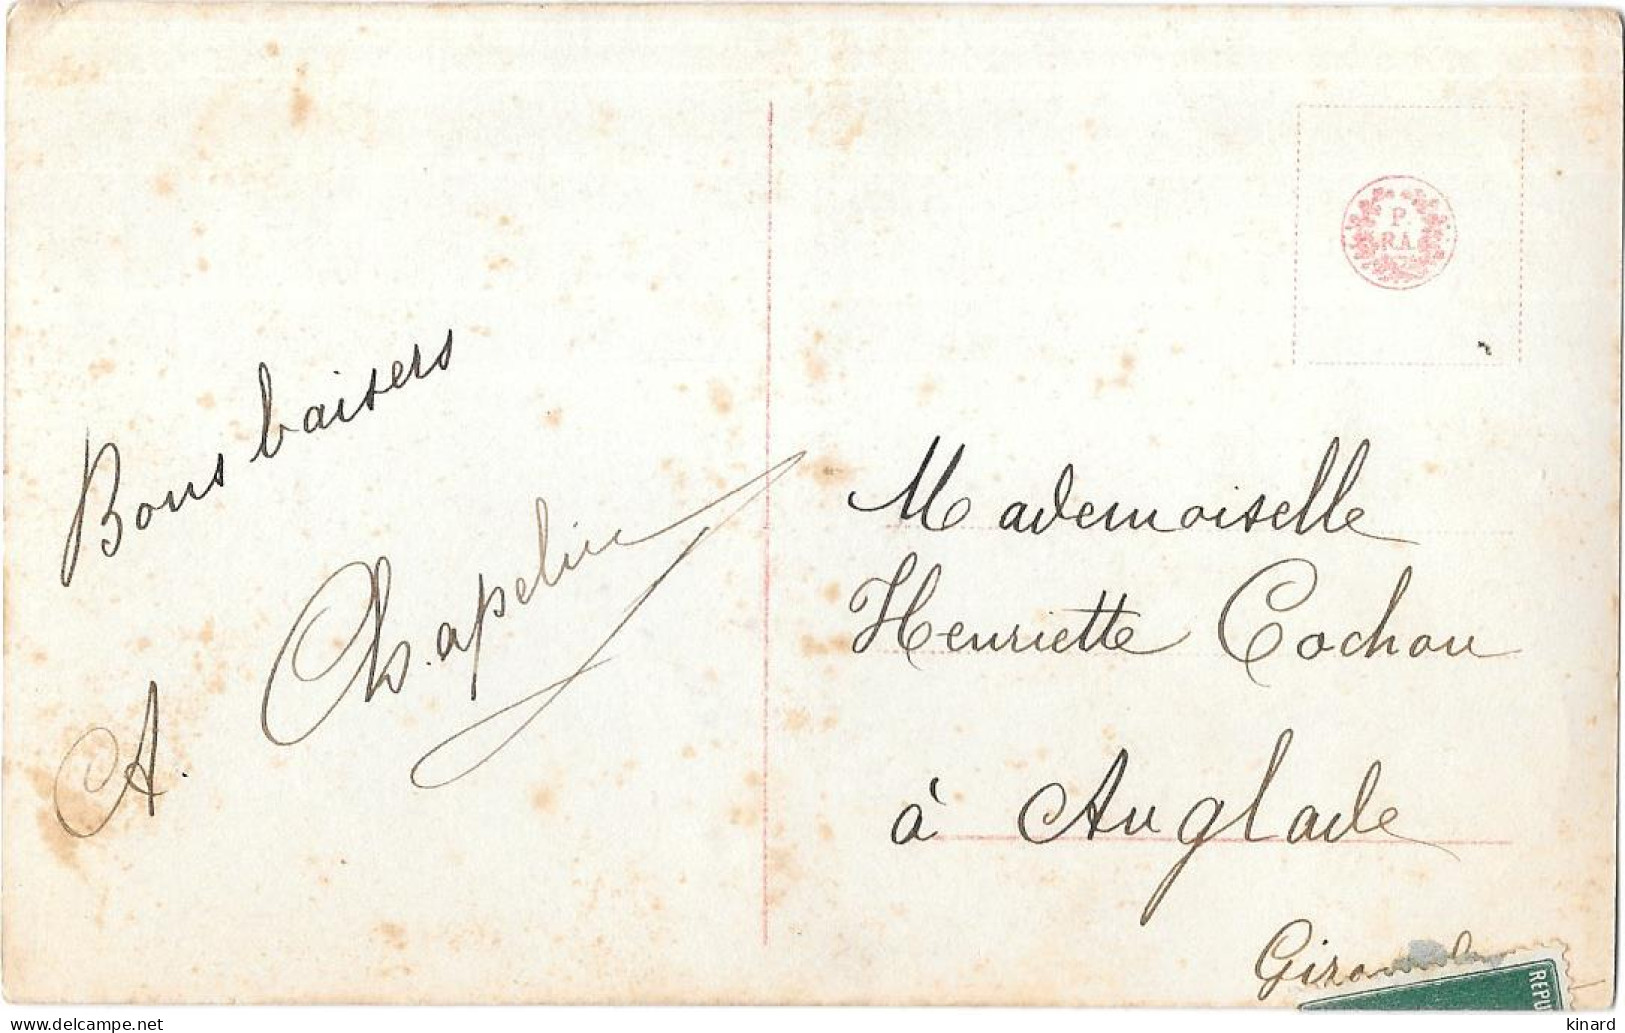 Bons baisers
A. Chapelin
P.
R.A.
Mademoiselle
Henriette Cochou
à Anglade
Gironde
REPU
delcampe.net
kinard